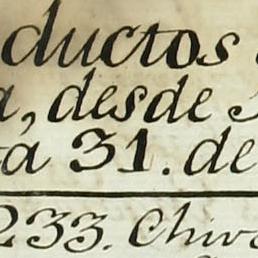 ductos
a, desde
a 31. de
233. Chiv